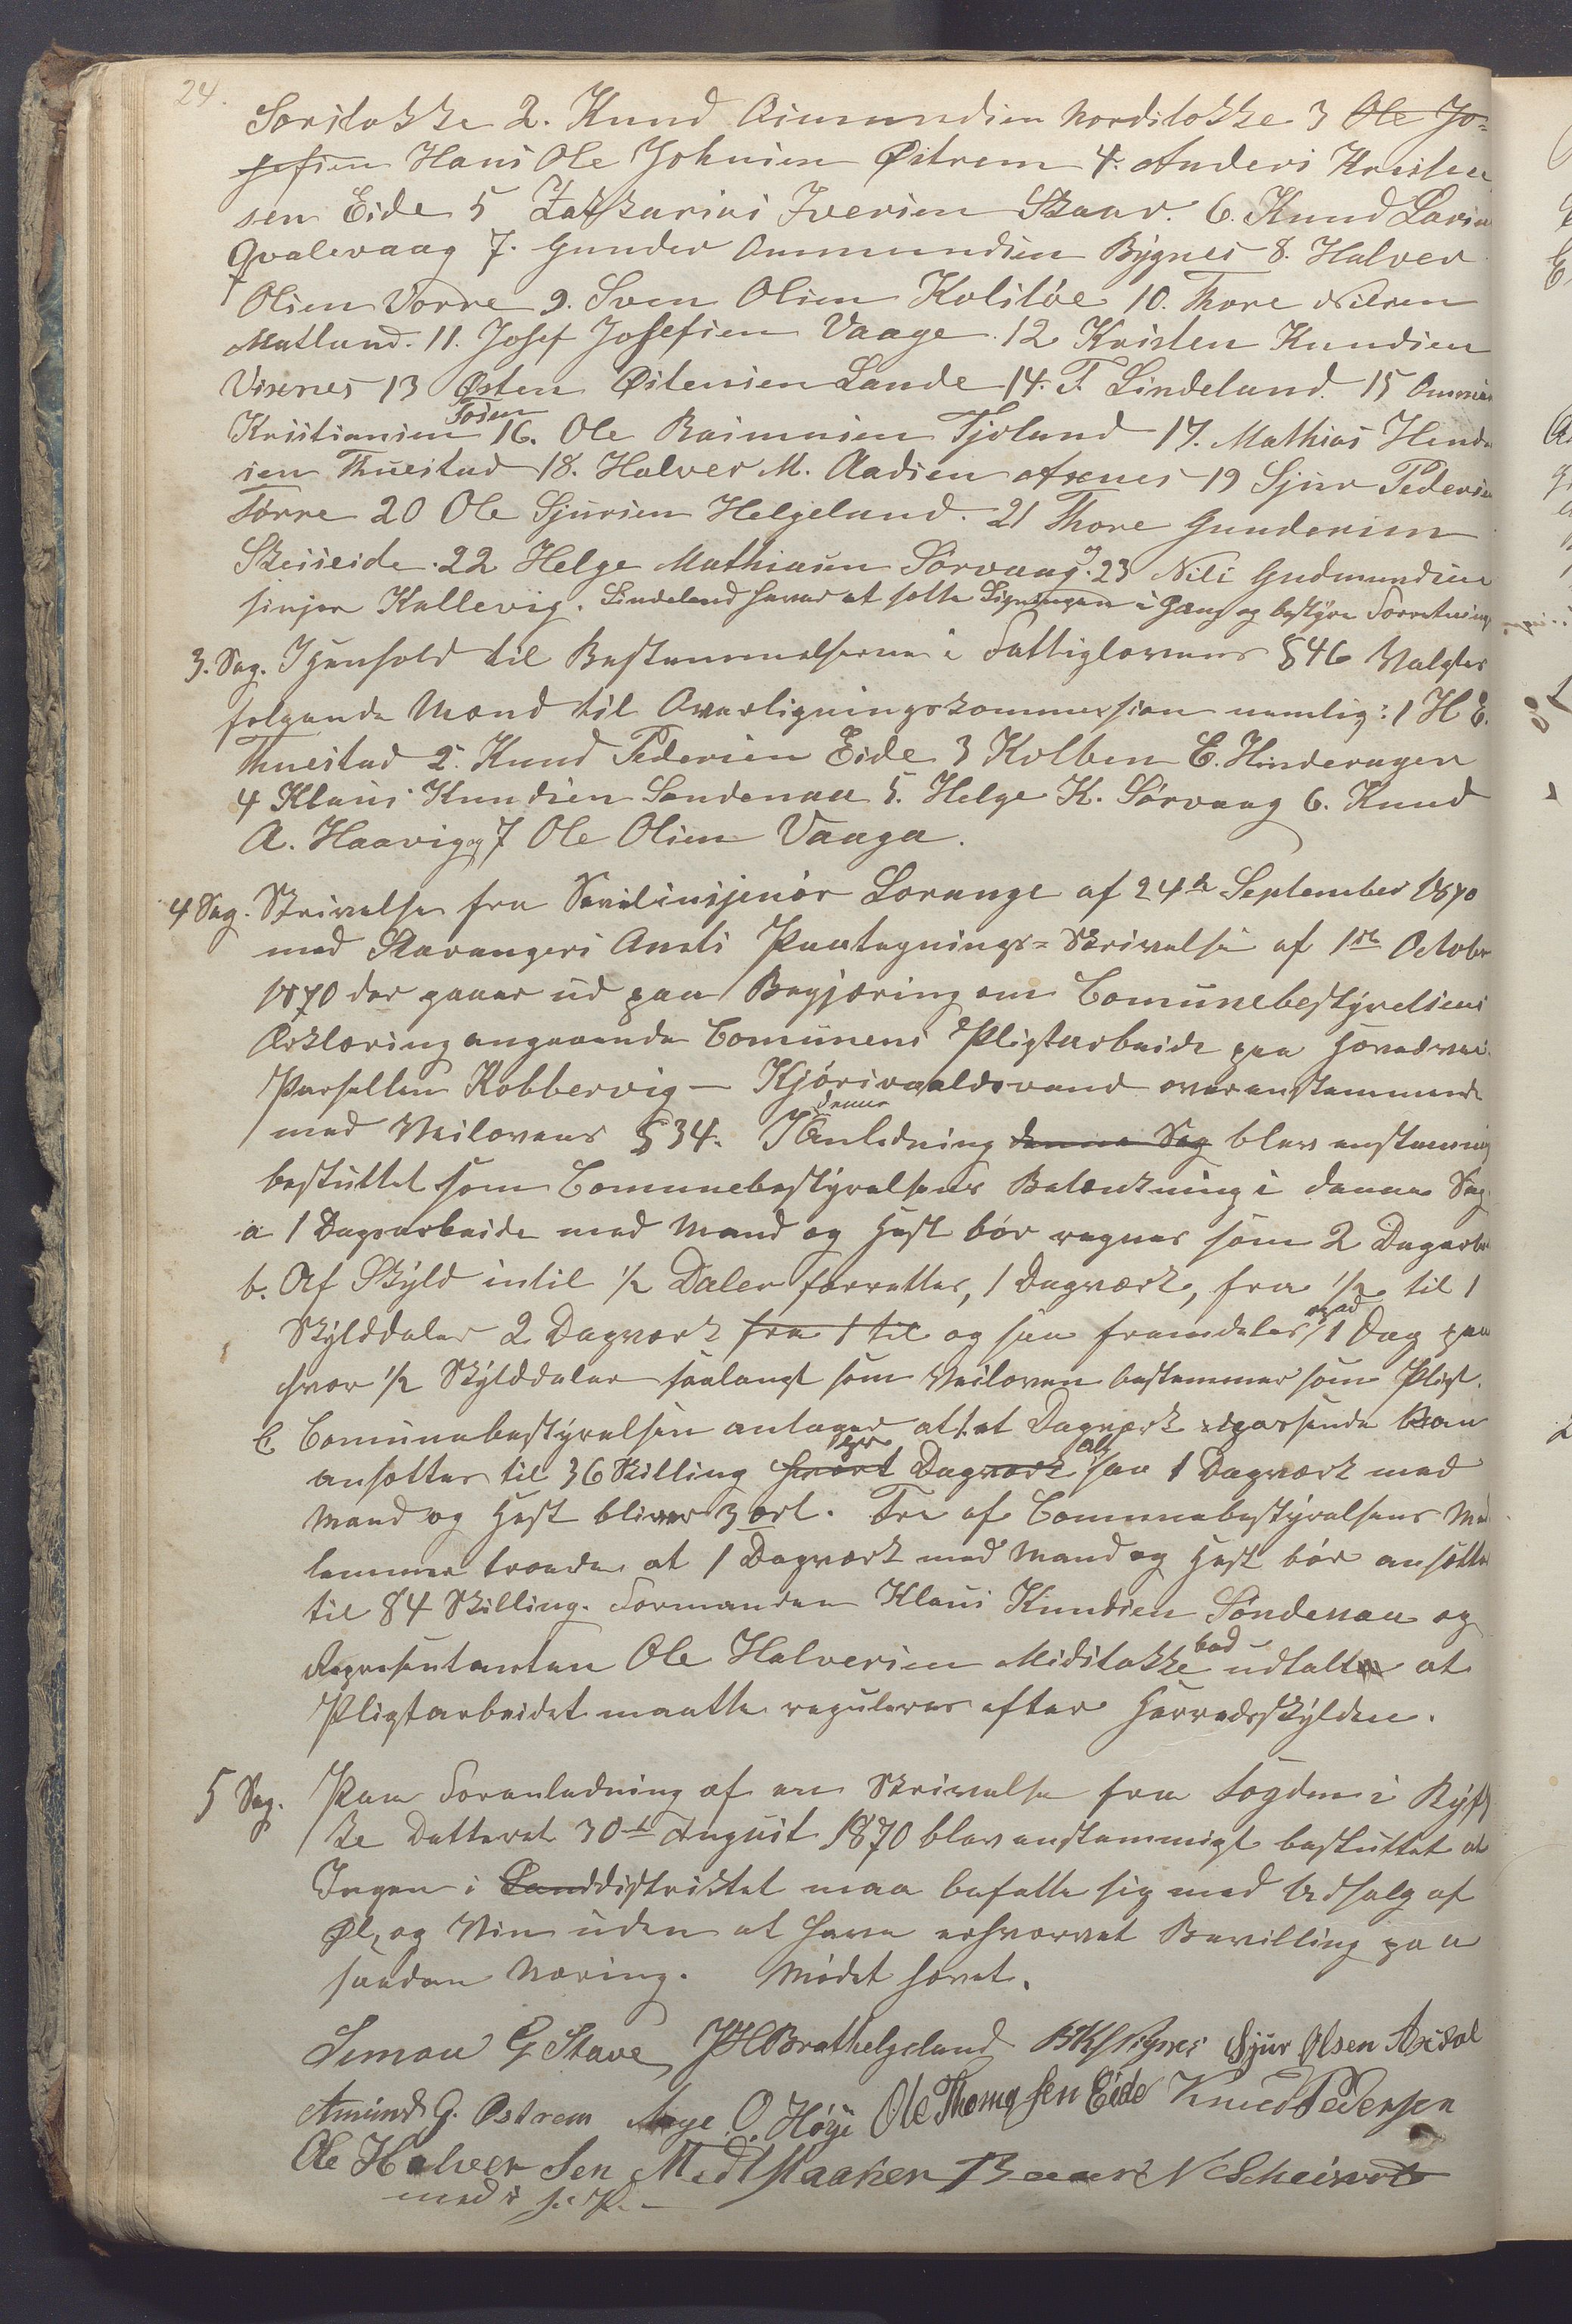 24.
Sørstokke 2. Knud Aimundsen Nordstokke 3 Ole Jo-
sefsen Hans Ole Johnsen Østrem 4. Anders Kristen
sen Eide 5 Zakkarias Iversen Skaar. 6. Knud Larsen
Qvalevaag 7. Gunder Ommundsen Bygnes 8. Halvor
Olsen Vorre 9. Sven Olsen Kolstøe 10. Thore Nilsen
Matland. 11. Josef Josefsen Vaage 12 Kristen Knudsen
Visnes 13 Østen Østensen Lande 14. T. Lindeland. 15 Ommun
Kristiansen Tøien 16. Ole Rasmusen Tjoland 17. Mathias Hend
sen Thuestad 18. Halvor M. Aadsen Axnes 19 Sjur Pedersen
Tørre 20 Ole Sjursen Helgeland. 21 Thore Gundersen
Skeiseide. 22 Helge Mathiasen Sørvaag. og 23 Nils Gudmundsen
Kallevig. Lindeland haver at sette Ligningen i Gang og bestyre Forretning
3. Sag. I Henhold til Bestemmelserne i Fattiglovens §46 Valgtes
følgende Mænd til Overligningskommission nemlig: 1 H E.
Thuestad 2. Knud Pedersen Eide 3 Kolben E. Hinderager
4 Klaus Knudsen Søndenaa 5. Helge K. Sørvaag 6. Knud
A. Haavig og 7 Ole Olsen Vaaga.
4 Sag. Skrivelse fra Sivilinsjenør Lorange af 24de September 1870
med Stavangers Amts Paategnings-Skrivelse af 1ste October
1870 der gaaer ud paa Begjæring om Comunebestyrelsens
Ærklæring angaaende Comunens Pligtarbeide paa Hovedvei
Parsellen Kobbervig — Kjørsvaldsvand overenstemmende
med Veilovens §34. I denne Anledning denne Sag blev enstemmig
besluttet som Comunebestyrelsens Betænkning i denne Sag
a 1 Dagsarbeide med Mand og Hest bør regnes som 2 Dagarbe
b. Af Skyld intil ½ Daler forrettes, 1 Dagværk, fra ½ til 1
Skylddaler 2 Dagværk fra 1 til og saa fremdeles med 1 Dag paa
hver ½ Skylddaler saalangt som Veiloven bestemmer som Pligt.
C Comunebestyrelsen antager at et Dagværk kan
ansættes til 36 Skilling hvert pr Dagværk alt saa 1 Dagværk med
Mand og Hest bliver 3 ort. Tre af Comunebestyrelsens Med
lemmer troede at 1 Dagværk med Mand og Hest bør ansætte
til 84 Skilling. Formanden Klaus Knudsen Søndenaa og
Repræsentanten Ole Halversen Midstokke bad udtalt at
Pligtarbeidet maatte reguleres efter Herredsskylden.
5 Sag. Paa Foranledning af en Skrivelse fra Fogden i Ryfy
ke Datteret 30te August 1870 blev enstemmigt besluttet at
Ingen i Landdistriktet maa befatte sig med Udsalg af
Øl, og Vin uden at have erhværvet Bevilling paa
saadan Næring. Mødet hævet.
Simon G Stave JH Brathelgeland BK Vignes Sjur Olsen Axdal
Amund G. Østrem Aage O. Høye Ole Thomassen Eide Knud Pedersen
Ole Halversen Medstaaken Baard N Scheiseide
med i P.